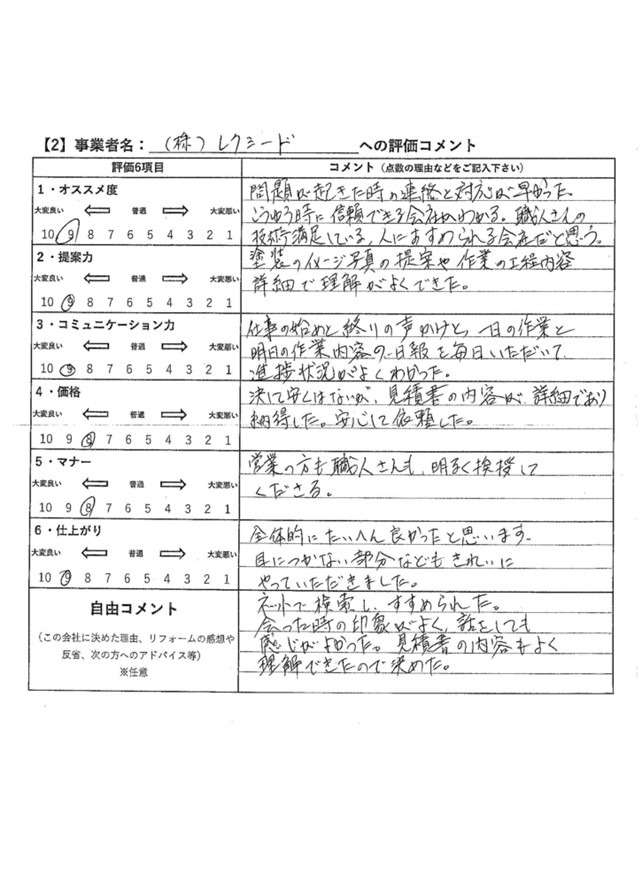 【2】事業者名：（株）レクシード への評価コメント
評価6項目
コメント（点数の理由などをご記入下さい）
1・オススメ度
大変良い 普通 大変悪い
10 9 8 7 6 5 4 3 2 1
問題が起きた時の連絡と対応が早かった、
こうゆう時に信頼できる会社かわかる。職人さんの
技術で満足している。人におすすめられる会社だと思う。
2・提案力
大変良い 普通 大変悪い
10 9 8 7 6 5 4 3 2 1
塗装のイメージ写真の提案や作業の工程内容
詳細で理解がよくできた。
3・コミュニケーション力
大変良い 普通 大変悪い
10 9 8 7 6 5 4 3 2 1
仕事の始めと終りの声かけと、一日の作業と
明日の作業内容の日報を毎日いただいて
進捗状況がよくわかった。
4・価格
大変良い 普通 大変悪い
10 9 8 7 6 5 4 3 2 1
決して安くはないが、見積書の内容が、詳細であり
納得した。安心して依頼した。
5・マナー
大変良い 普通 大変悪い
10 9 8 7 6 5 4 3 2 1
営業の方も職人さんも、明るく挨拶して
くださる。
6・仕上がり
大変良い 普通 大変悪い
10 9 8 7 6 5 4 3 2 1
全体的にたいへん良かったと思います。
目につかない部分などもきれいに
やっていただきました。
自由コメント
（この会社に決めた理由、リフォームの感想や
反省、次の方へのアドバイス等）
※任意
ネットで検索し、すすめられた。
会った時の印象がよく、話をしても
感じがよかった。見積書の内容もよく
理解できたので決めた。